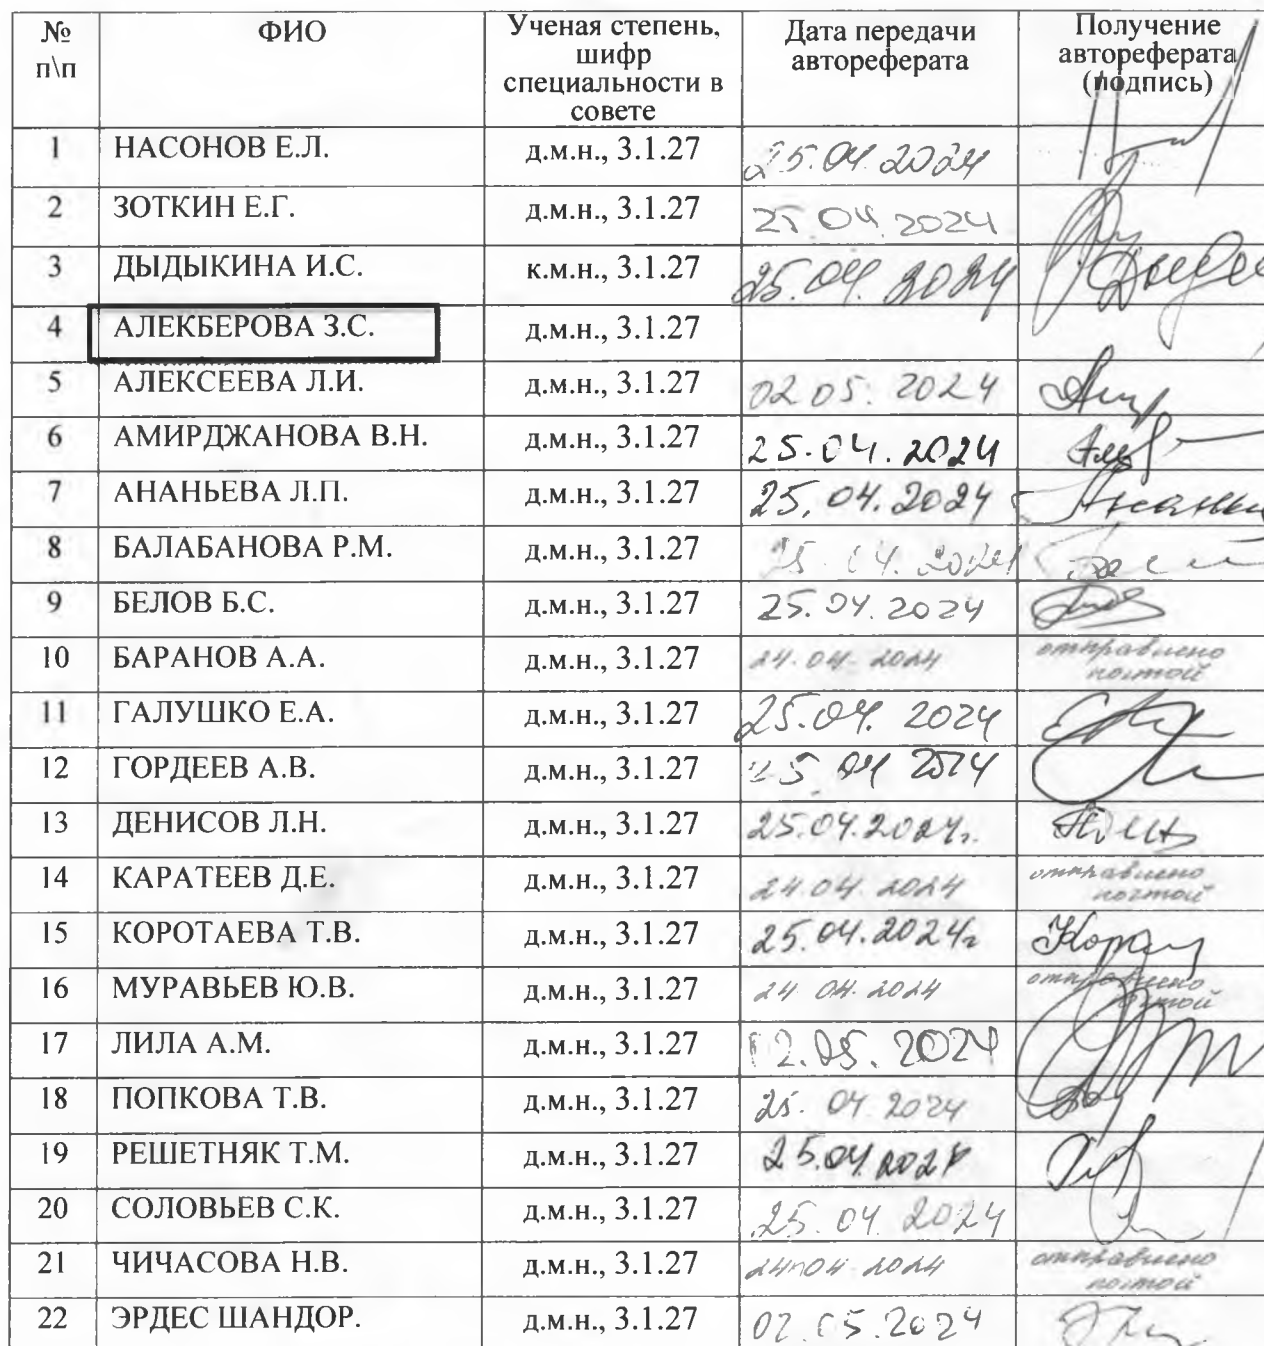 № п\п ФИО Ученая степень, шифр специальности в совете Дата передачи автореферата Получение автореферата (подпись)
1 НАСОНОВ Е.Л. д.м.н., 3.1.27 25.04.2024
2 ЗОТКИН Е.Г. д.м.н., 3.1.27 25.04.2024
3 ДЫДЫКИНА И.С. к.м.н., 3.1.27 25.04.2024
4 АЛЕКБЕРОВА З.С. д.м.н., 3.1.27
5 АЛЕКСЕЕВА Л.И. д.м.н., 3.1.27 02.05.2024
6 АМИРДЖАНОВА В.Н. д.м.н., 3.1.27 25.04.2024
7 АНАНЬЕВА Л.П. д.м.н., 3.1.27 25.04.2024
8 БАЛАБАНОВА Р.М. д.м.н., 3.1.27 25.04.2024
9 БЕЛОВ Б.С. д.м.н., 3.1.27 25.04.2024
10 БАРАНОВ А.А. д.м.н., 3.1.27 24.04.2024 отправлено почтой
11 ГАЛУШКО Е.А. д.м.н., 3.1.27 25.04.2024
12 ГОРДЕЕВ А.В. д.м.н., 3.1.27 25 04 2024
13 ДЕНИСОВ Л.Н. д.м.н., 3.1.27 25.04.2024г.
14 КАРАТЕЕВ Д.Е. д.м.н., 3.1.27 24.04.2024 отправлено почтой
15 КОРОТАЕВА Т.В. д.м.н., 3.1.27 25.04.2024г
16 МУРАВЬЕВ Ю.В. д.м.н., 3.1.27 24.04.2024 отправлено почтой
17 ЛИЛА А.М. д.м.н., 3.1.27 02.05.2024
18 ПОПКОВА Т.В. д.м.н., 3.1.27 25.04.2024
19 РЕШЕТНЯК Т.М. д.м.н., 3.1.27 25.04.2024
20 СОЛОВЬЕВ С.К. д.м.н., 3.1.27 25.04.2024
21 ЧИЧАСОВА Н.В. д.м.н., 3.1.27 24.04.2024 отправлено почтой
22 ЭРДЕС ШАНДОР. д.м.н., 3.1.27 02.05.2024